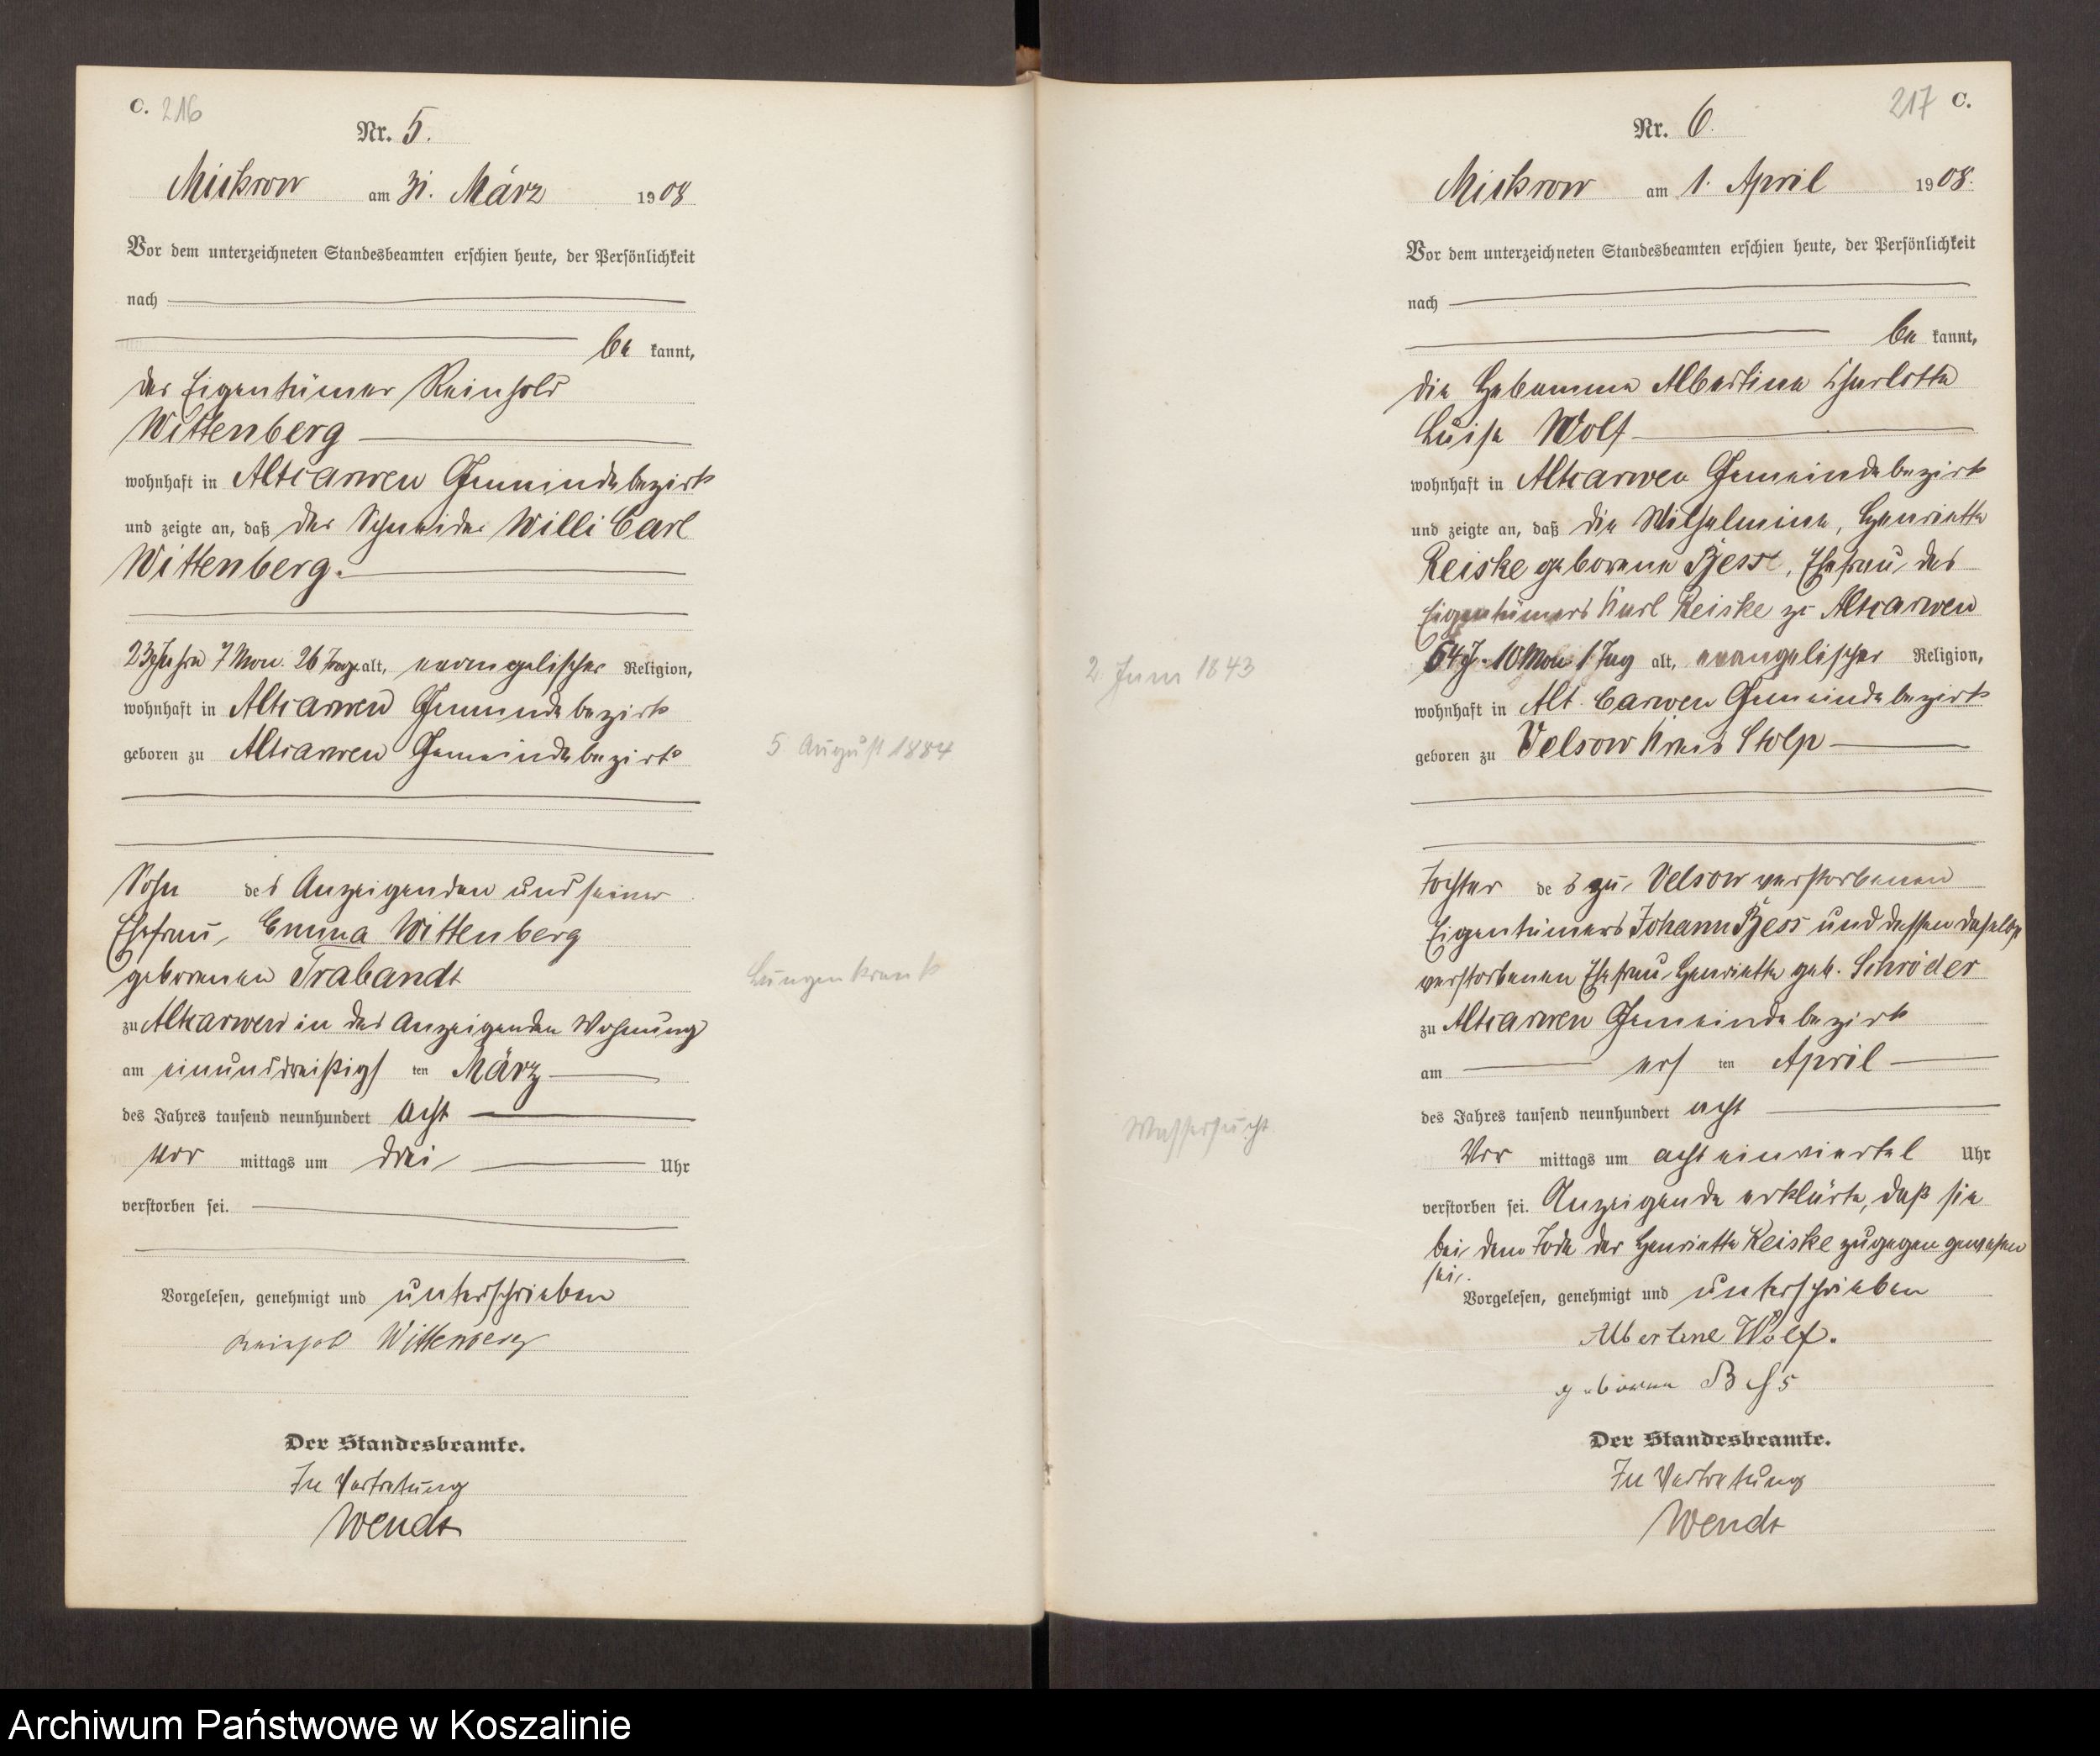 C. 216
Nr. 5.
Mickrow am 31. März 1908
Vor dem unterzeichneten Standesbeamten erschien heute, der Persönlichkeit
nach
be kannt,
der Eigentümer Reinhold
Wittenberg
wohnhaft in Altcarwen Gemeindebezirk
und zeigte an, daß der Schneider Willi Carl
Wittenberg.
23 Jahre 7 Mon. 26 Tage alt, evangelischer Religion,
wohnhaft in Altcarwen Gemeindebezirk
geboren zu Altcarwen Gemeindebezirk
5 August 1884
Sohn des Anzeigenden und seiner
Ehefrau, Emma Wittenberg
geborenen Trabandt
Lungenkrank
zu Altcarwen in des Anzeigenden Wohnung
am einunddreißigs ten März
des Jahres tausend neunhundert acht
vor mittags um drei Uhr
verstorben sei.
Vorgelesen, genehmigt und unterschrieben
Reinhold Wittenberg
Der Standesbeamte.
In Vertretung
Wendt
217 C.
Nr. 6.
Mickrow am 1. April 1908.
Vor dem unterzeichneten Standesbeamten erschien heute, der Persönlichkeit
nach
be kannt,
die Hebamme Albertine Charlotte
Luise Wolf
wohnhaft in Altcarwen Gemeindebezirk
und zeigte an, daß die Wilhelmine, Henriette
Reiske geborene Pjess, Ehefrau des
Eigentümers Karl Reiske zu Altcarwen
64 J. 10 Mon 1 Tag alt, evangelischer Religion,
2 Juni 1843
wohnhaft in Alt Carwen Gemeindebezirk
geboren zu Velsow Kreis Stolp
Tochter des zu Velsow verstorbenen
Eigentümers Johann Pjess und dessen daselbst
verstorbenen Ehefrau, Henriette geb. Schröder
zu Altcarwen Gemeindebezirk
am ers ten April
des Jahres tausend neunhundert acht
Wassersucht
Vor mittags um acht einviertel Uhr
verstorben sei. Anzeigende erklärte, daß sie
bei dem Tode der Henriette Reiske zugegen gewesen
sei.
Vorgelesen, genehmigt und unterschrieben
Albertine Wolf.
geborene
Der Standesbeamte.
In Vertretung
Wendt
Archiwum Państwowe w Koszalinie